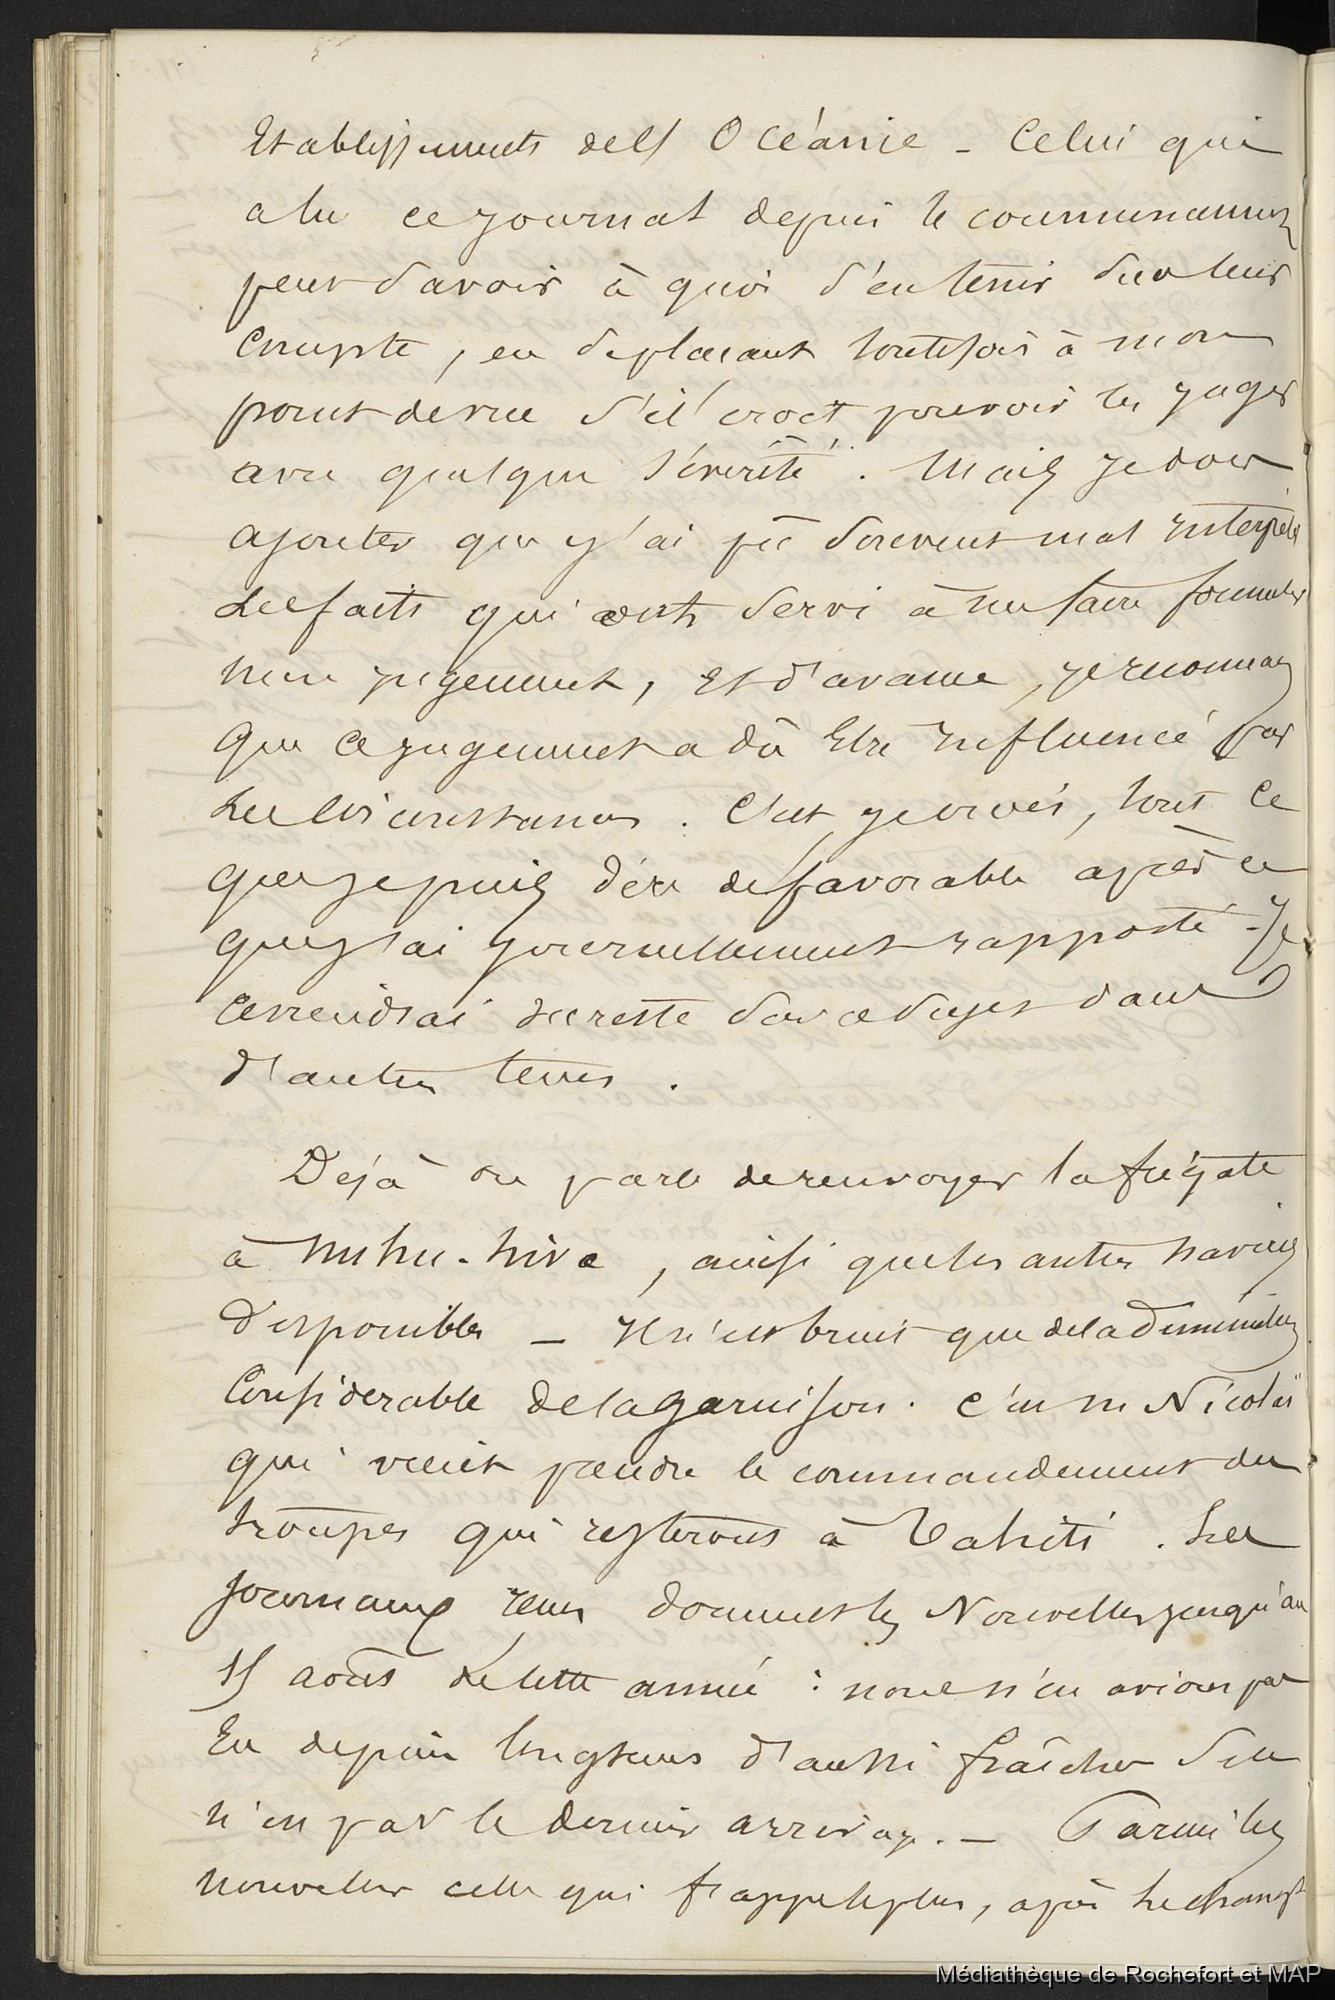 Etablissements de l'Océanie _ Celui qui
a lu ce journal depuis le commencement
peut savoir à quoi s'en tenir sur leur
compte, en se plaçant toutefois à mon
point de vue s'il croit pouvoir les juger
avec quelque sévérité. Mais je dois
ajouter que j'ai pû souvent mal interpreté
les faits qui ont servi à me faire formuler
mon jugement, et d'avance, je reconnais
que ce jugement a dû être influencé par
les circonstances. C'est, je crois, tout ce
que je puis dire de favorable après ce
que j'ai journellement rapporté _ Je
reviendrai du reste sur ce sujet dans
d'autres tems.
Déjà on parle de renvoyer la frégate
à Nuhu-hiva, ainsi que les autres navires
disponibles _ Il n'est bruit que de la diminution
considerable de la garnison. C'est Mr Nicolaï
qui vient prendre le commandement des
troupes qui resteront à Tahiti. Les
journaux nous donnent les Nouvelles jusqu'au
15 août de cette année : nous n'en avions pas
eu depuis longtems d'aussi fraîches si ce
n'est par le dernier arrivage. _ Parmi les
nouvelles celle qui frappe le plus, après le changt
Médiathèque de Rochefort et MAP